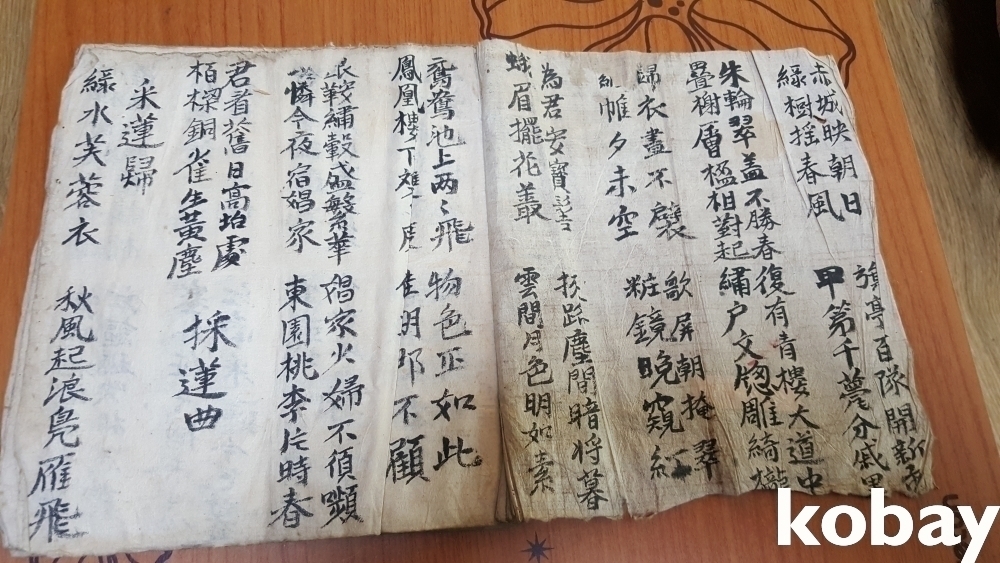 赤城映朝日
綠樹搖春風
亭百隊開新
甲第千甍分戚里
朱輪翠盖不勝春
疊榭層楹相對起
復有青樓大道中
繡户文窓雕綺櫳
歸衣盡不襞
帷夕未空
歌屏朝掩翠
粧鏡晚窺紅
為君安寶
蛾眉擺花叢
路塵間暗将暮
雲間月色明如素
鴛鴦池上两〻飛
鳳凰樓下雙〻度
物色正如此
佳明那不顧
銀鞍繡轂盛繁華
憐今夜宿娼家
娼家火婦不須嚬
東園桃李片時春
君者舊日高坮處
栢樑銅雀生黃塵
採蓮曲
采蓮歸
綠水芙蓉衣
秋風起浪鳧雁飛
kobay